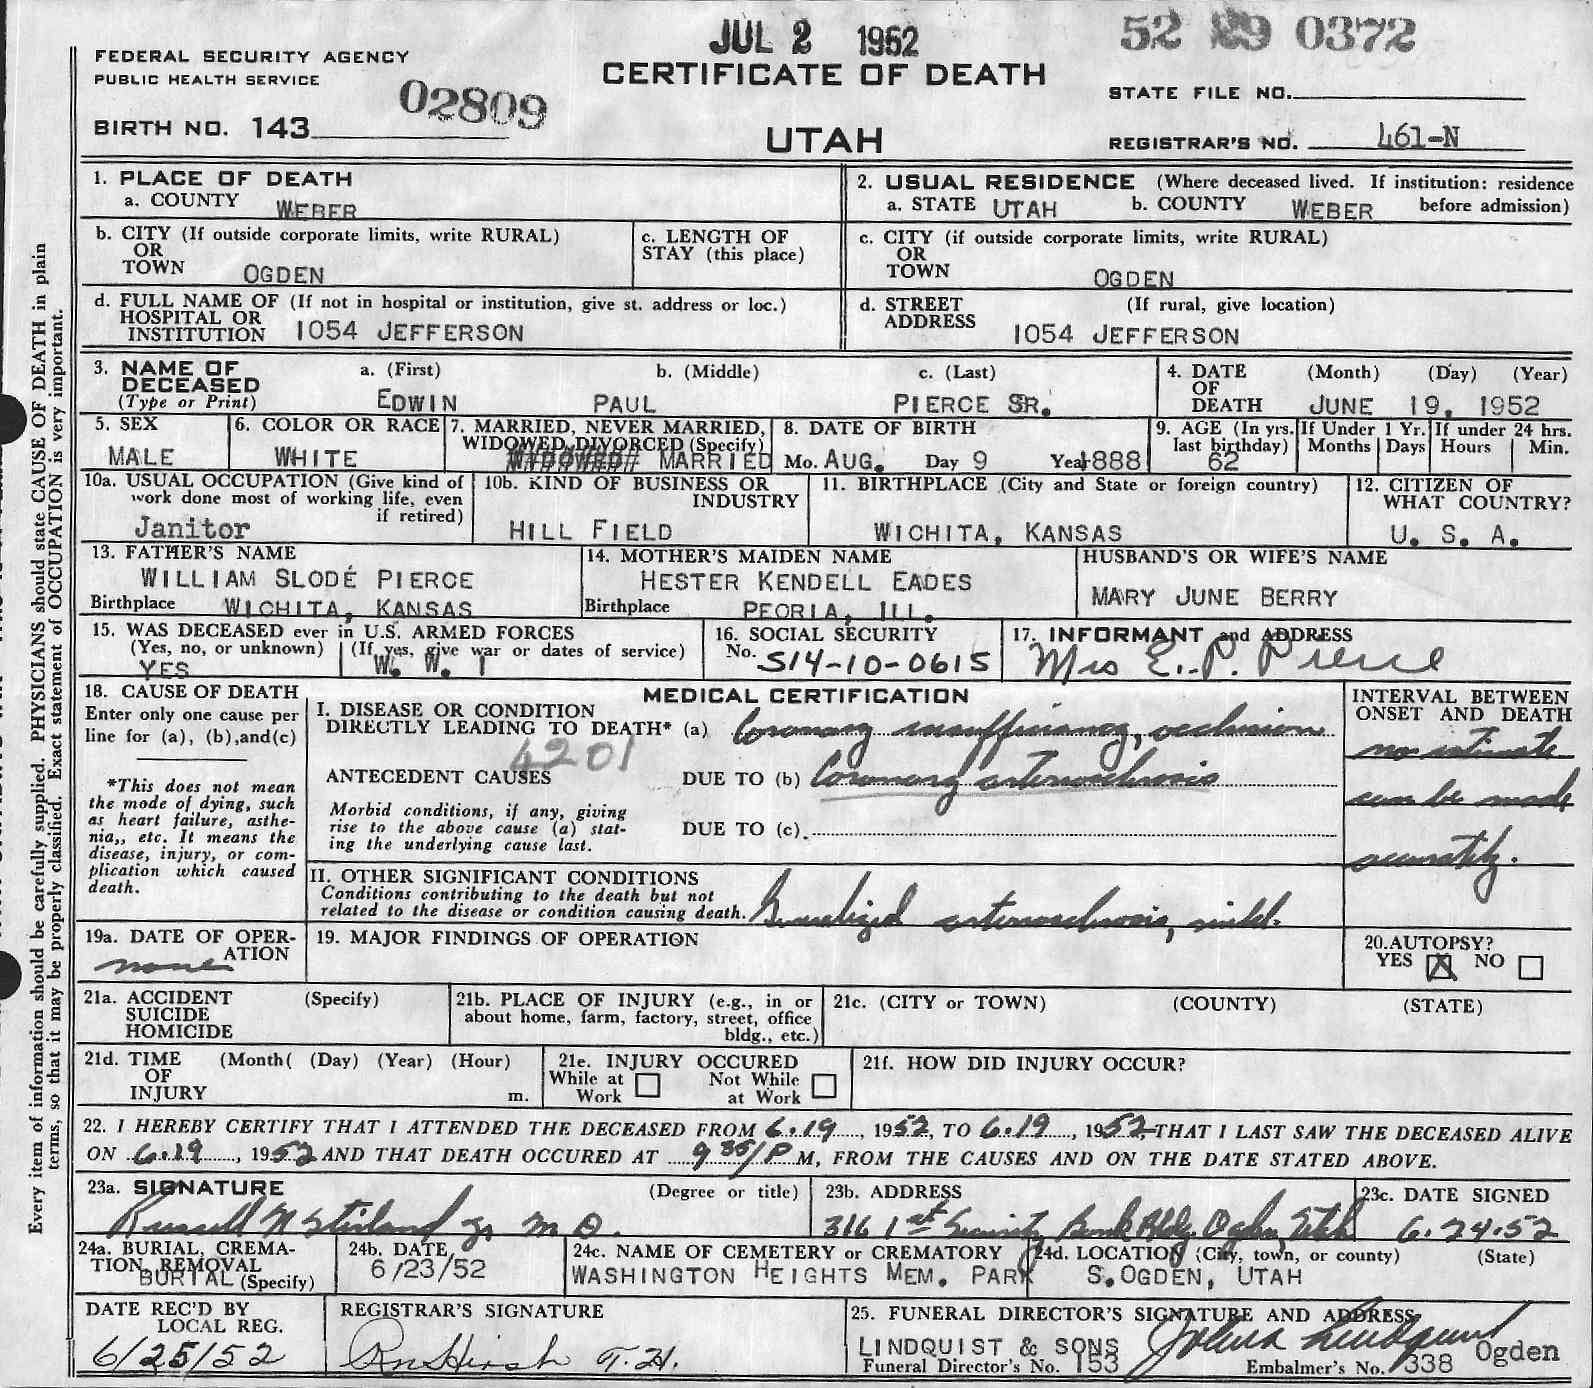 JUL 2 1952
52 29 0372
FEDERAL SECURITY AGENCY
PUBLIC HEALTH SERVICE
02809
CERTIFICATE OF DEATH
STATE FILE NO.
BIRTH NO. 143
UTAH
REGISTRAR'S NO. 461-N
1. PLACE OF DEATH
a. COUNTY WEBER
2. USUAL RESIDENCE (Where deceased lived. If institution: residence before admission)
a. STATE UTAH b. COUNTY WEBER
b. CITY (If outside corporate limits, write RURAL)
OR
TOWN OGDEN
c. LENGTH OF
STAY (this place)
c. CITY (if outside corporate limits, write RURAL)
OR
TOWN OGDEN
d. FULL NAME OF (If not in hospital or institution, give st. address or loc.)
HOSPITAL OR
INSTITUTION 1054 JEFFERSON
d. STREET (If rural, give location)
ADDRESS 1054 JEFFERSON
3. NAME OF a. (First) b. (Middle) c. (Last)
DECEASED
(Type or Print) EDWIN PAUL PIERCE SR.
4. DATE (Month) (Day) (Year)
OF
DEATH JUNE 19, 1952
5. SEX
MALE
6. COLOR OR RACE
WHITE
7. MARRIED, NEVER MARRIED,
WIDOWED, DIVORCED (Specify)
MARRIED
8. DATE OF BIRTH
Mo. AUG. Day 9 Year 1888
9. AGE (In yrs. last birthday)
62
If Under 1 Yr.
Months Days
If under 24 hrs.
Hours Min.
10a. USUAL OCCUPATION (Give kind of
work done most of working life, even
if retired)
Janitor
10b. KIND OF BUSINESS OR
INDUSTRY
HILL FIELD
11. BIRTHPLACE (City and State or foreign country)
WICHITA, KANSAS
12. CITIZEN OF
WHAT COUNTRY?
U. S. A.
13. FATHER'S NAME
WILLIAM SLODE PIERCE
Birthplace WICHITA, KANSAS
14. MOTHER'S MAIDEN NAME
HESTER KENDELL EADES
Birthplace PEORIA, ILL.
HUSBAND'S OR WIFE'S NAME
MARY JUNE BERRY
15. WAS DECEASED ever in U.S. ARMED FORCES
(Yes, no, or unknown) (If yes, give war or dates of service)
YES W. W. I
16. SOCIAL SECURITY
No. 514-10-0615
17. INFORMANT and ADDRESS
Mrs E. P. Pierce
18. CAUSE OF DEATH
Enter only one cause per
line for (a), (b),and(c)
*This does not mean
the mode of dying, such
as heart failure, asthe-
nia,, etc. It means the
disease, injury, or com-
plication which caused
death.
MEDICAL CERTIFICATION
I. DISEASE OR CONDITION
DIRECTLY LEADING TO DEATH* (a) Coronary insufficiency, occlusion
4201
ANTECEDENT CAUSES DUE TO (b) Coronary arteriosclerosis
Morbid conditions, if any, giving
rise to the above cause (a) stat-
ing the underlying cause last.
DUE TO (c)
II. OTHER SIGNIFICANT CONDITIONS
Conditions contributing to the death but not
related to the disease or condition causing death. Generalized arteriosclerosis, mild.
INTERVAL BETWEEN
ONSET AND DEATH
no estimate
can be made
accurately.
19a. DATE OF OPER-
ATION
none
19. MAJOR FINDINGS OF OPERATION
20. AUTOPSY?
YES X NO
21a. ACCIDENT (Specify)
SUICIDE
HOMICIDE
21b. PLACE OF INJURY (e.g., in or
about home, farm, factory, street, office
bldg., etc.)
21c. (CITY or TOWN) (COUNTY) (STATE)
21d. TIME (Month( (Day) (Year) (Hour)
OF
INJURY m.
21e. INJURY OCCURED
While at Work Not While at Work
21f. HOW DID INJURY OCCUR?
22. I HEREBY CERTIFY THAT I ATTENDED THE DECEASED FROM 6.19, 1952, TO 6.19, 1952, THAT I LAST SAW THE DECEASED ALIVE
ON 6.19, 1952 AND THAT DEATH OCCURED AT 9 35/P M, FROM THE CAUSES AND ON THE DATE STATED ABOVE.
23a. SIGNATURE (Degree or title)
Russell N Stirland Jr M D.
23b. ADDRESS
316 1st Security Bank Bldg. Ogden, Utah
23c. DATE SIGNED
6.24.52
24a. BURIAL, CREMA-
TION, REMOVAL
BURIAL (Specify)
24b. DATE
6/23/52
24c. NAME OF CEMETERY or CREMATORY
WASHINGTON HEIGHTS MEM. PARK
24d. LOCATION (City, town, or county) (State)
S. OGDEN, UTAH
DATE REC'D BY
LOCAL REG.
6/25/52
REGISTRAR'S SIGNATURE
25. FUNERAL DIRECTOR'S SIGNATURE AND ADDRESS
LINDQUIST & SONS Ogden
Funeral Director's No. 153 Embalmer's No. 338
Every item of information should be carefully supplied. PHYSICIANS should state CAUSE OF DEATH in plain
terms, so that it may be properly classified. Exact statement of OCCUPATION is very important.